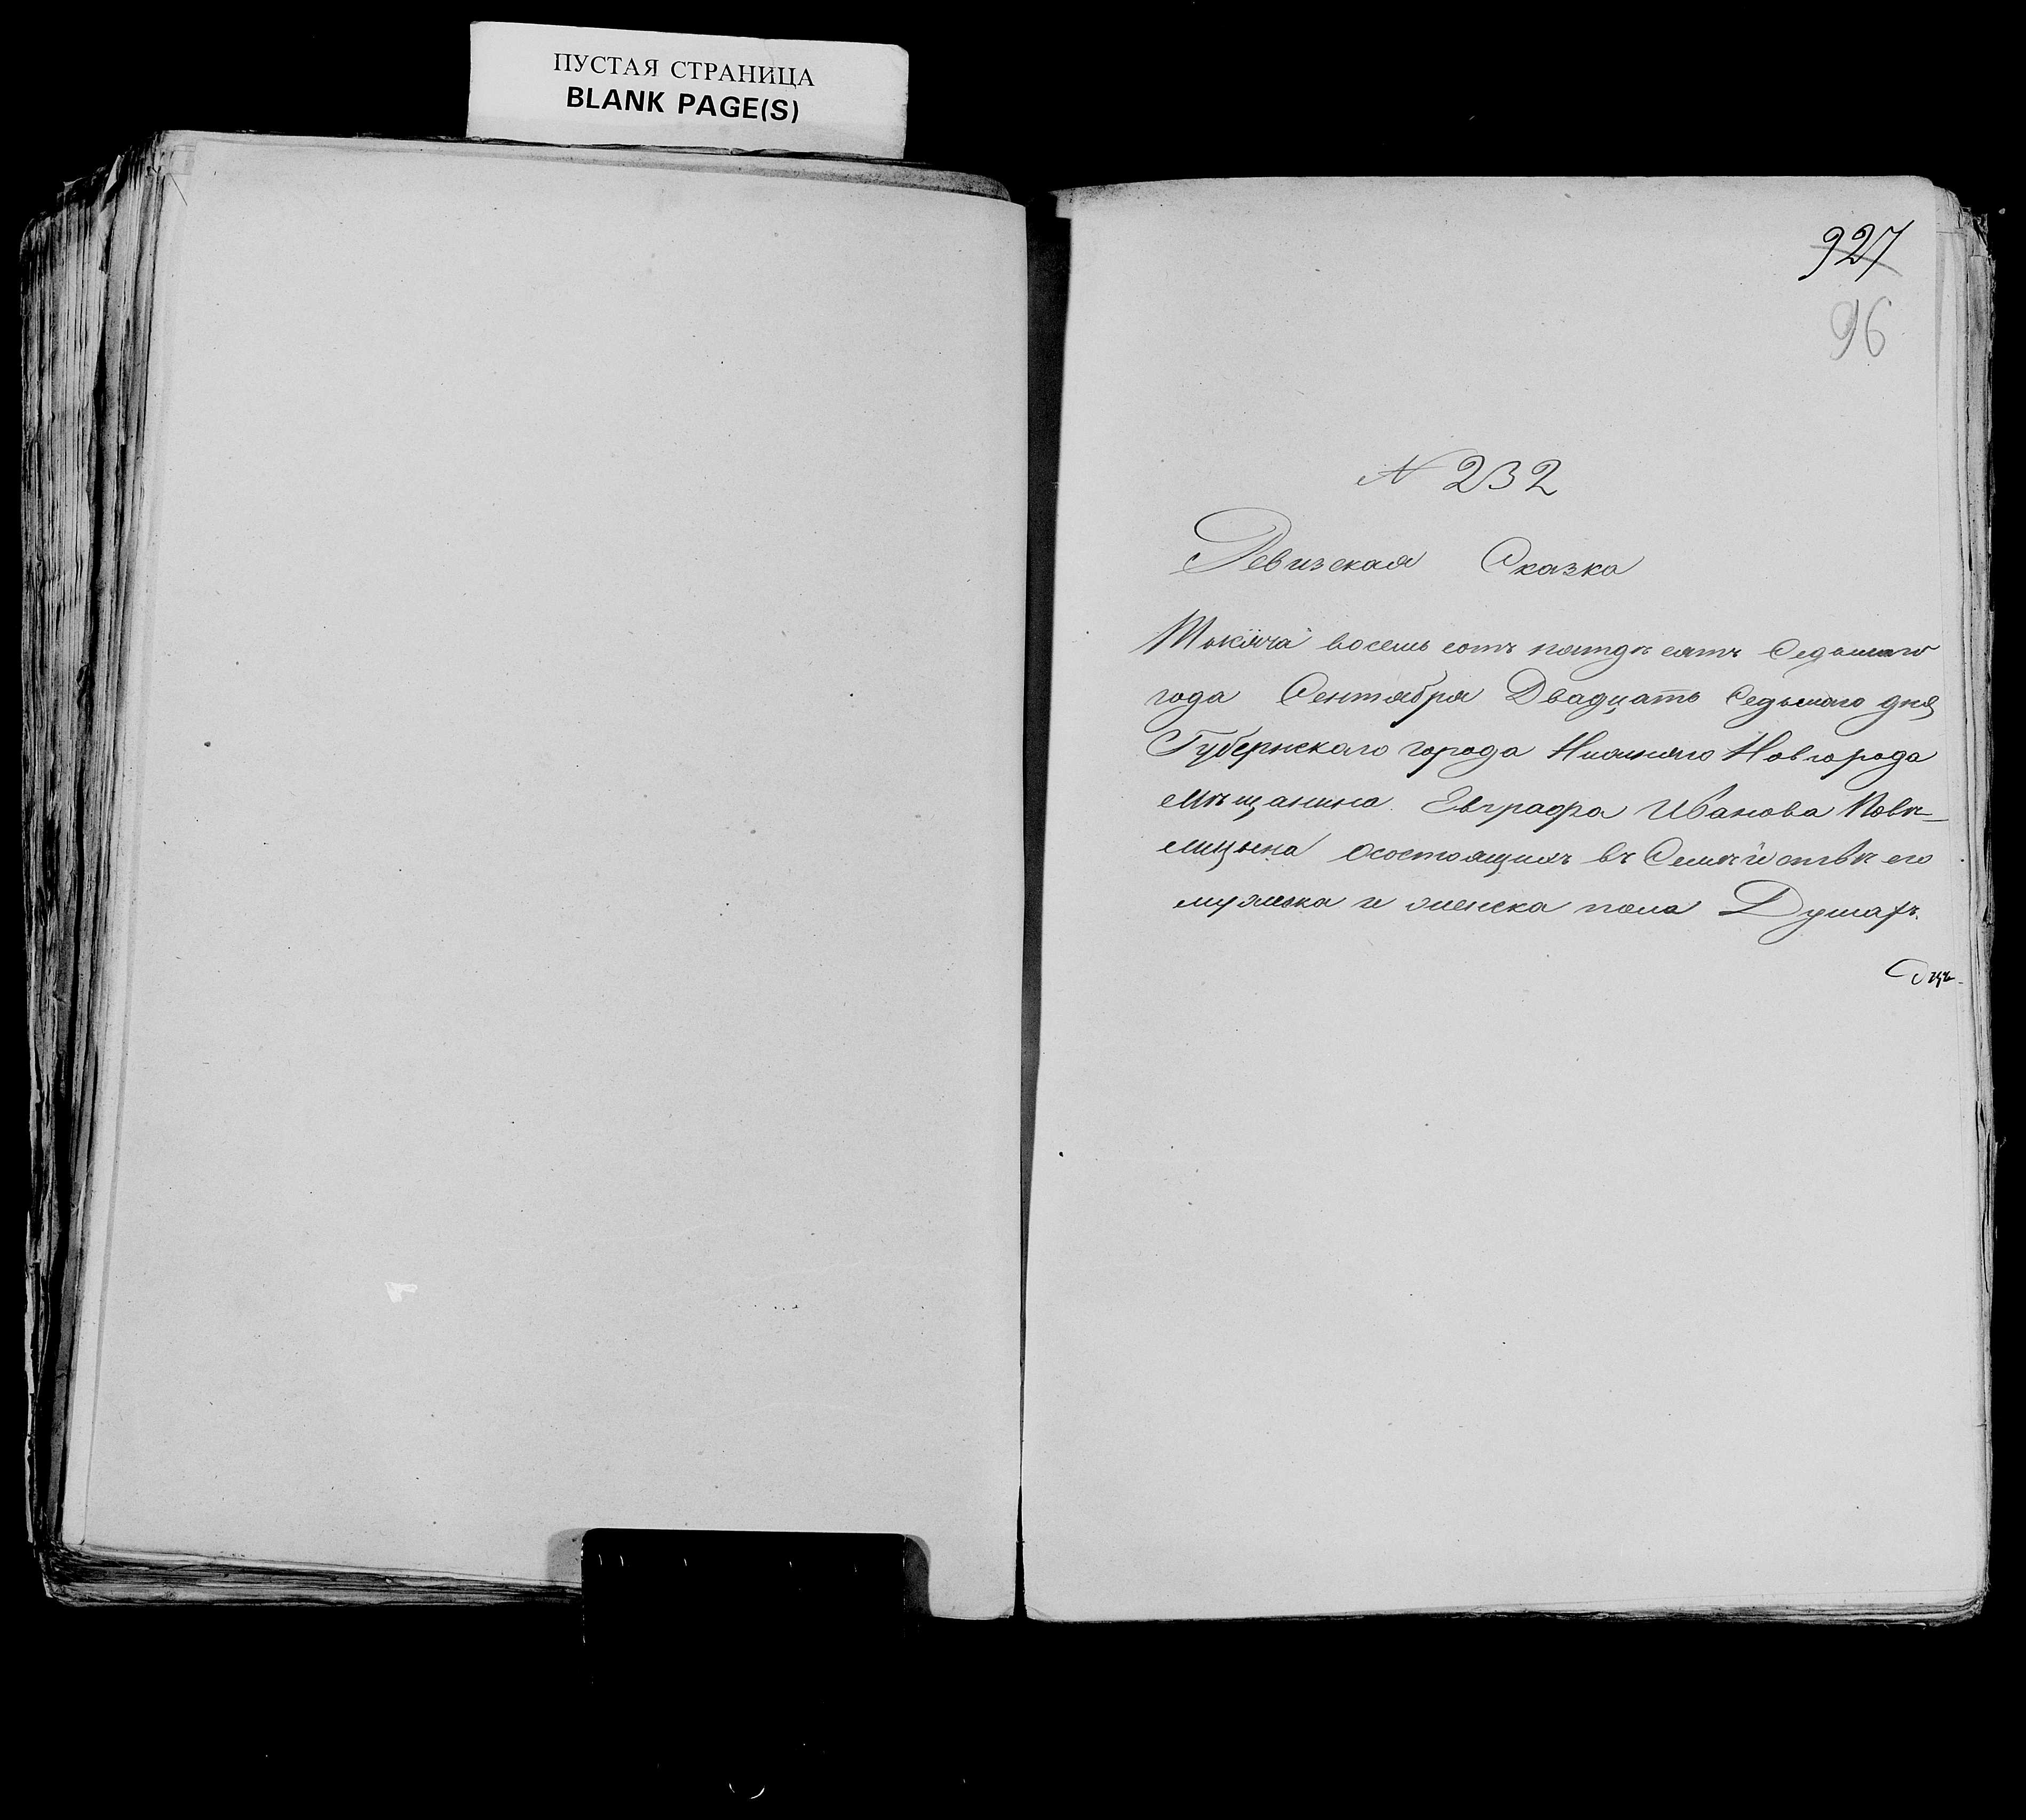 ПУСТАЯ СТРАНИЦА
BLANK PAGE(S)
927
96
№ 232
Ревизская Сказка
Тысяча восемь сотъ пятдѣсятъ Седьмаго
года Сентября Двадцать Седьмаго дня
Губернскаго города Нижняго Новгорода
мѣщанина Евграфа Иванова
о состоящихъ въ Семѣйствѣ его
мужска и женска пола Душахъ.